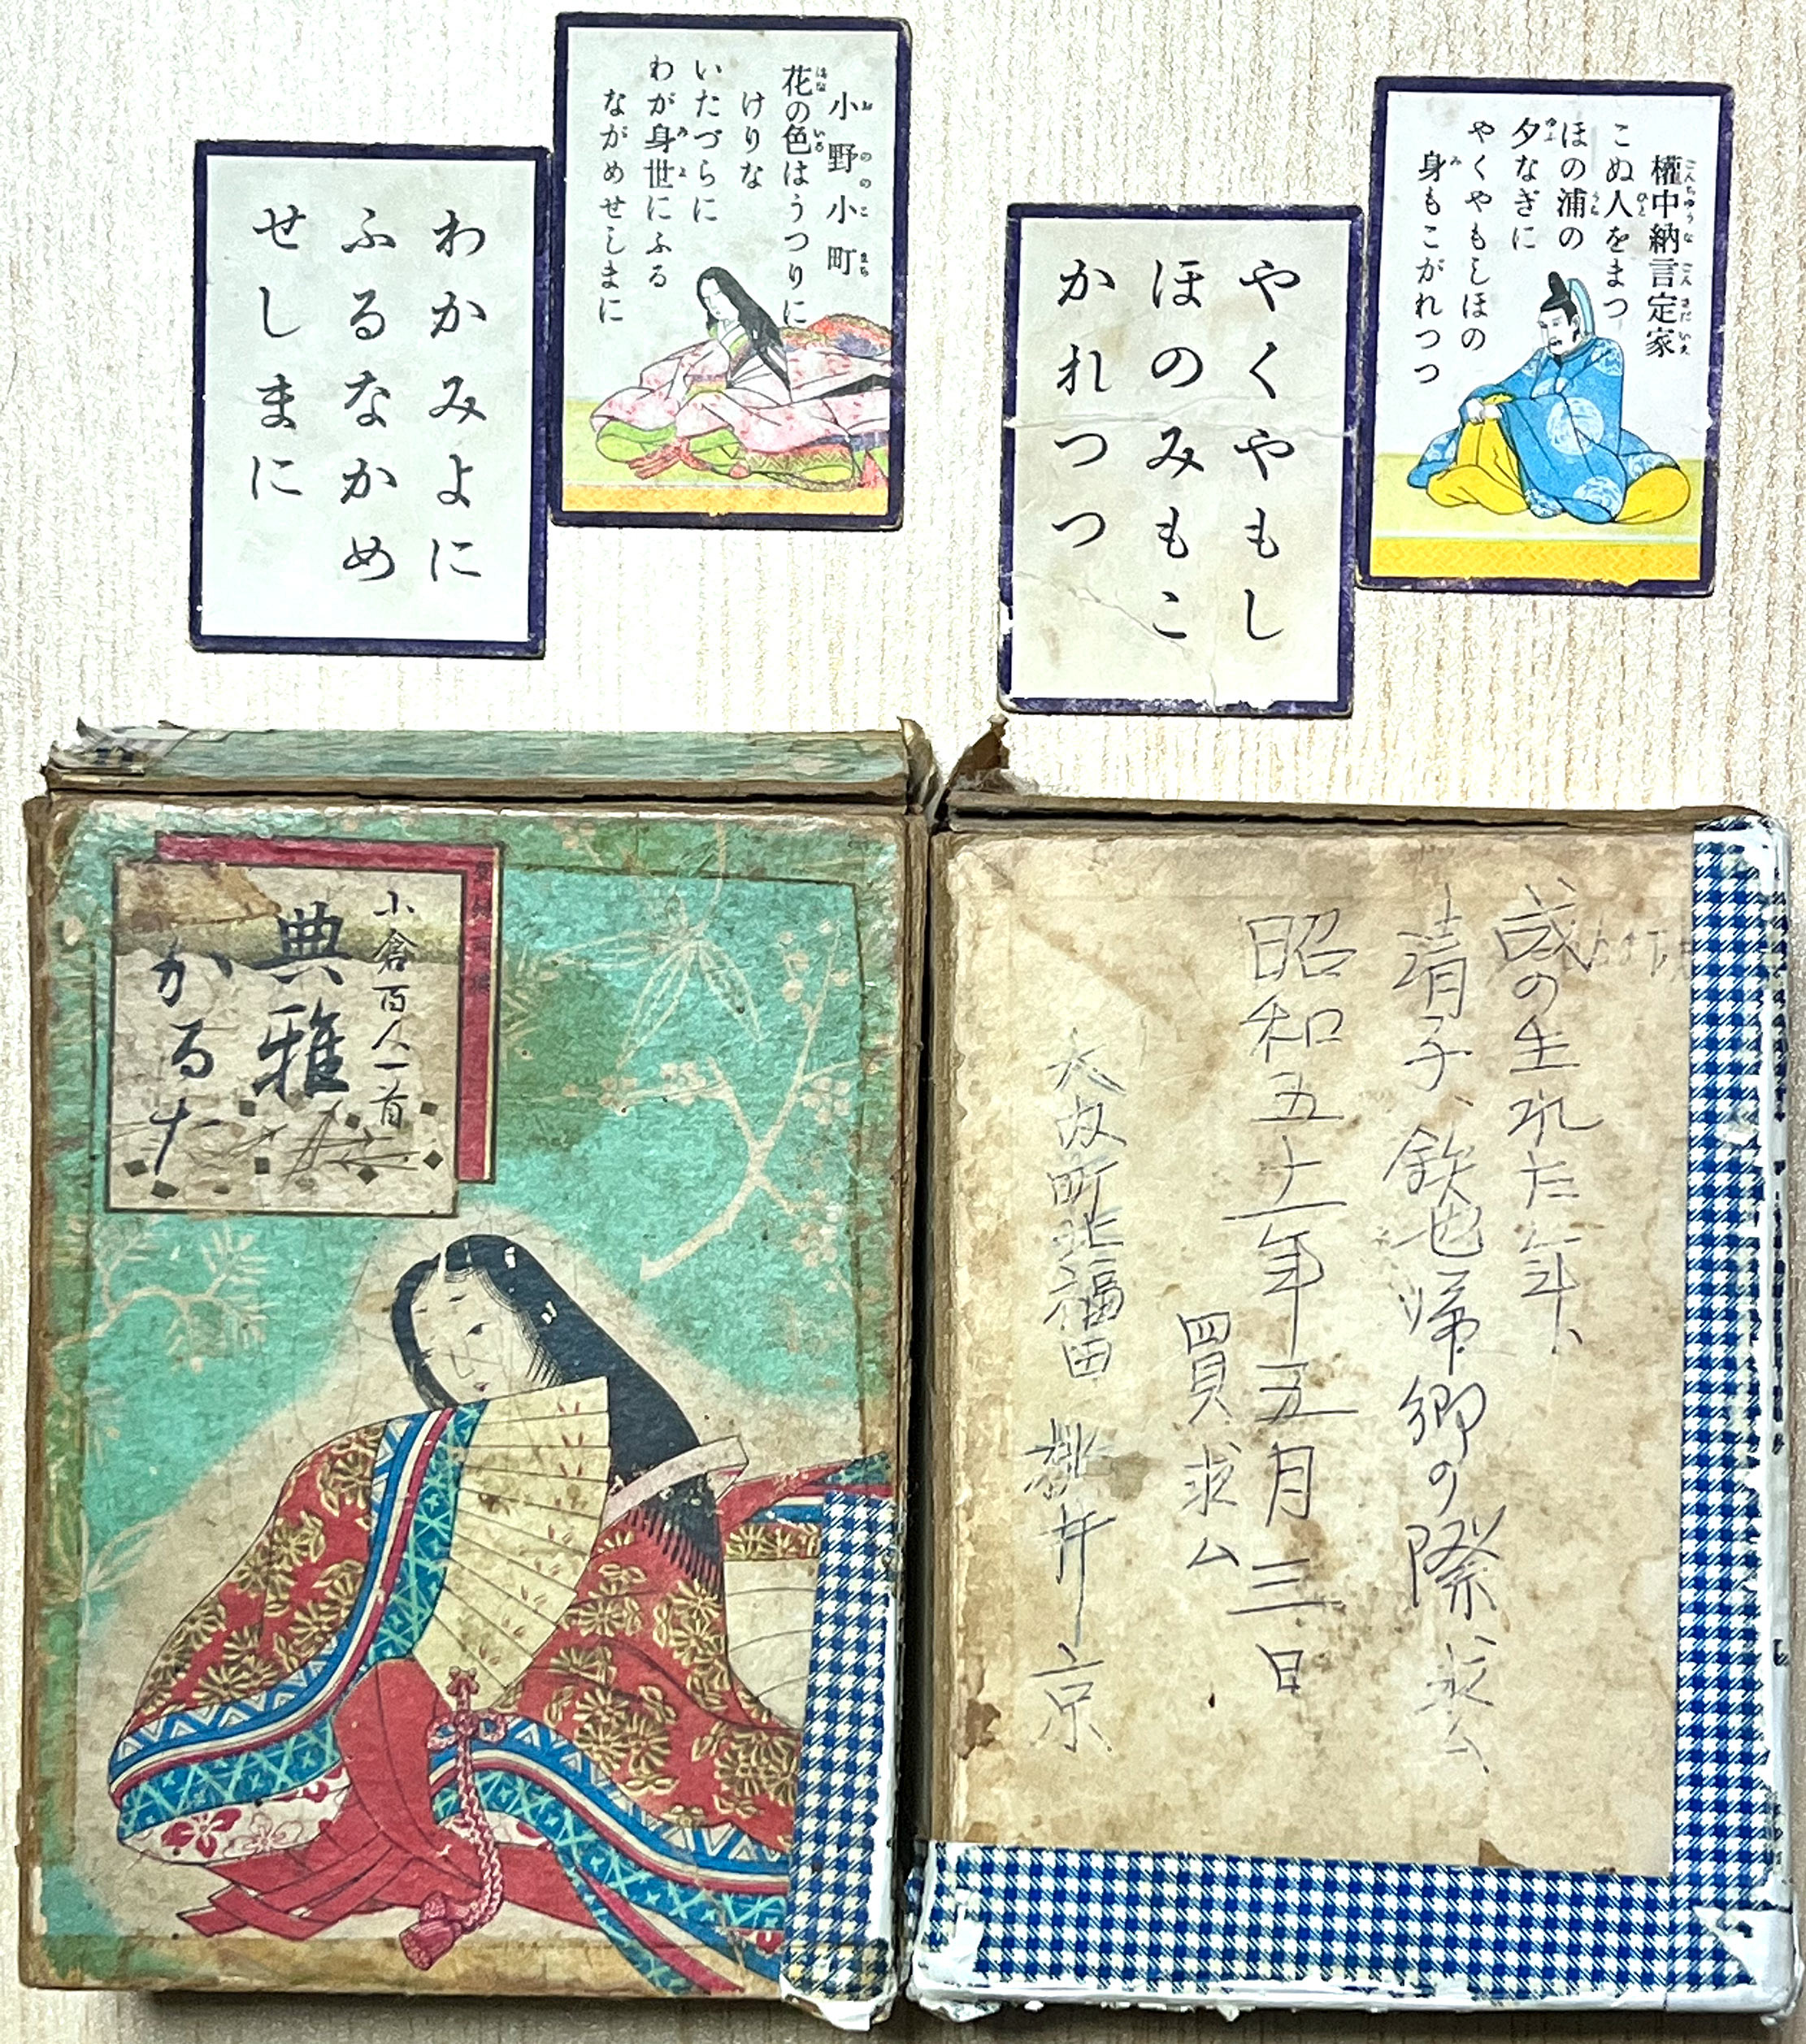 小野小町
花の色はうつりに
けりな
いたづらに
わが身世にふる
ながめせしまに
わかみよに
ふるなかめ
せしまに
権中納言定家
こぬ人をまつ
ほの浦の
夕なぎに
やくやもしほの
身もこがれつつ
やくやもし
ほのみもこ
かれつつ
小倉百人一首
典雅
かるた
の生れた年、
清子、欽也帰郷の際 求ム
昭和五十一年五月三日
買求ム
大阪町北福田 桃井 京